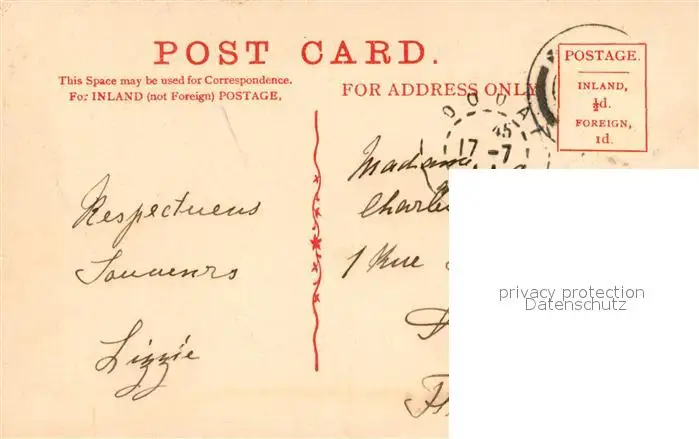 POST CARD.
This Space may be used for Correspondence.
For INLAND (not Foreign) POSTAGE.
FOR ADDRESS ONLY
POSTAGE.
INLAND,
½d.
FOREIGN,
1d.
DOUAI
45
17 - 7
Respectueus
Souvenirs
Lizzie
Madame
1 Rue
privacy protection
Datenschutz